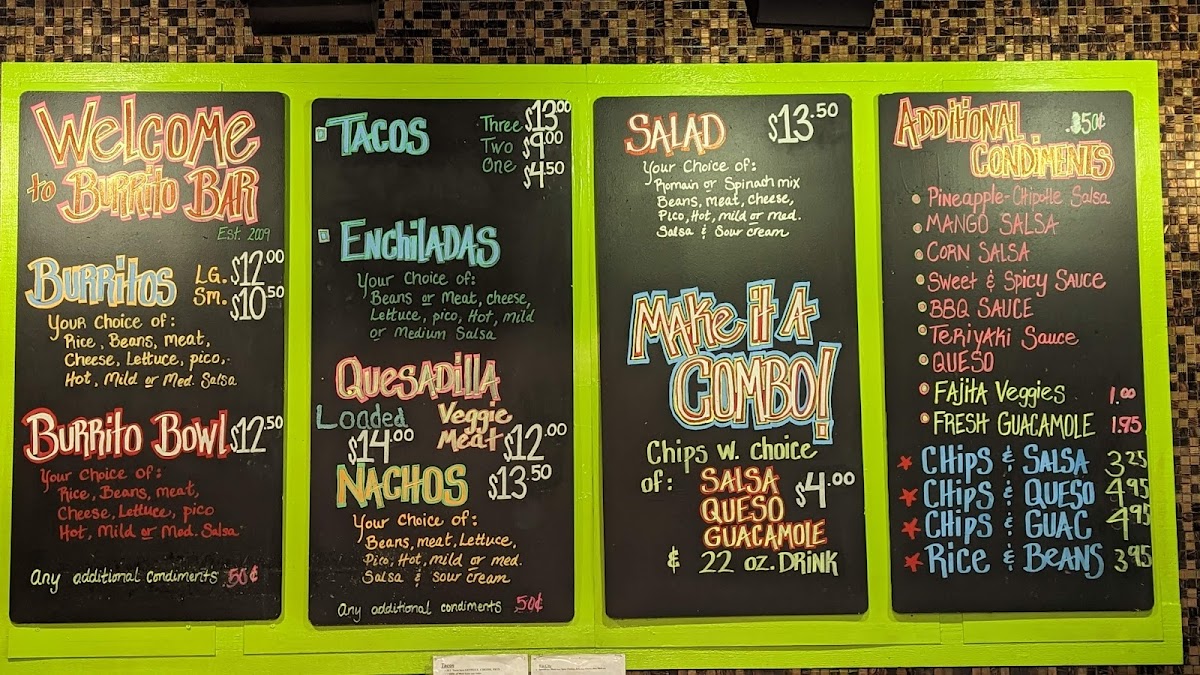 Welcome
to Burrito BAR
Est. 2009
Burritos LG. $12.00
Sm. $10.50
Your Choice of:
Rice, Beans, meat,
Cheese, Lettuce, pico,
Hot, Mild or Med. Salsa
Burrito Bowl $12.50
Your Choice of:
Rice, Beans, meat,
Cheese, Lettuce, pico
Hot, Mild or Med. Salsa
Any additional condiments .50¢
TACOS Three $13.00
Two $9.00
One $4.50
Enchiladas
Your Choice of:
Beans or Meat, cheese,
Lettuce, pico, Hot, mild
or Medium Salsa
Quesadilla
Loaded $14.00
Veggie
Meat $12.00
NACHOS $13.50
Your Choice of:
Beans, meat, Lettuce,
Pico, Hot, mild or med.
Salsa & Sour cream
Any additional condiments .50¢
SALAD $13.50
Your Choice of:
Romain or Spinach mix
Beans, meat, cheese,
Pico, Hot, mild or med.
Salsa & Sour cream
Make it A
COMBO!
Chips w. choice
of: SALSA
QUESO
GUACAMOLE
$4.00
& 22 oz. DRINK
Additional .50¢
Condiments
Pineapple-Chipotle Salsa
MANGO SALSA
CORN SALSA
Sweet & Spicy Sauce
BBQ SAUCE
Teriyaki Sauce
QUESO
FAJITA Veggies 1.00
FRESH GUACAMOLE 1.95
CHips & SALSA 3.25
CHips & QUESO 4.95
CHips & GUAC 4.95
Rice & BEANS 3.95